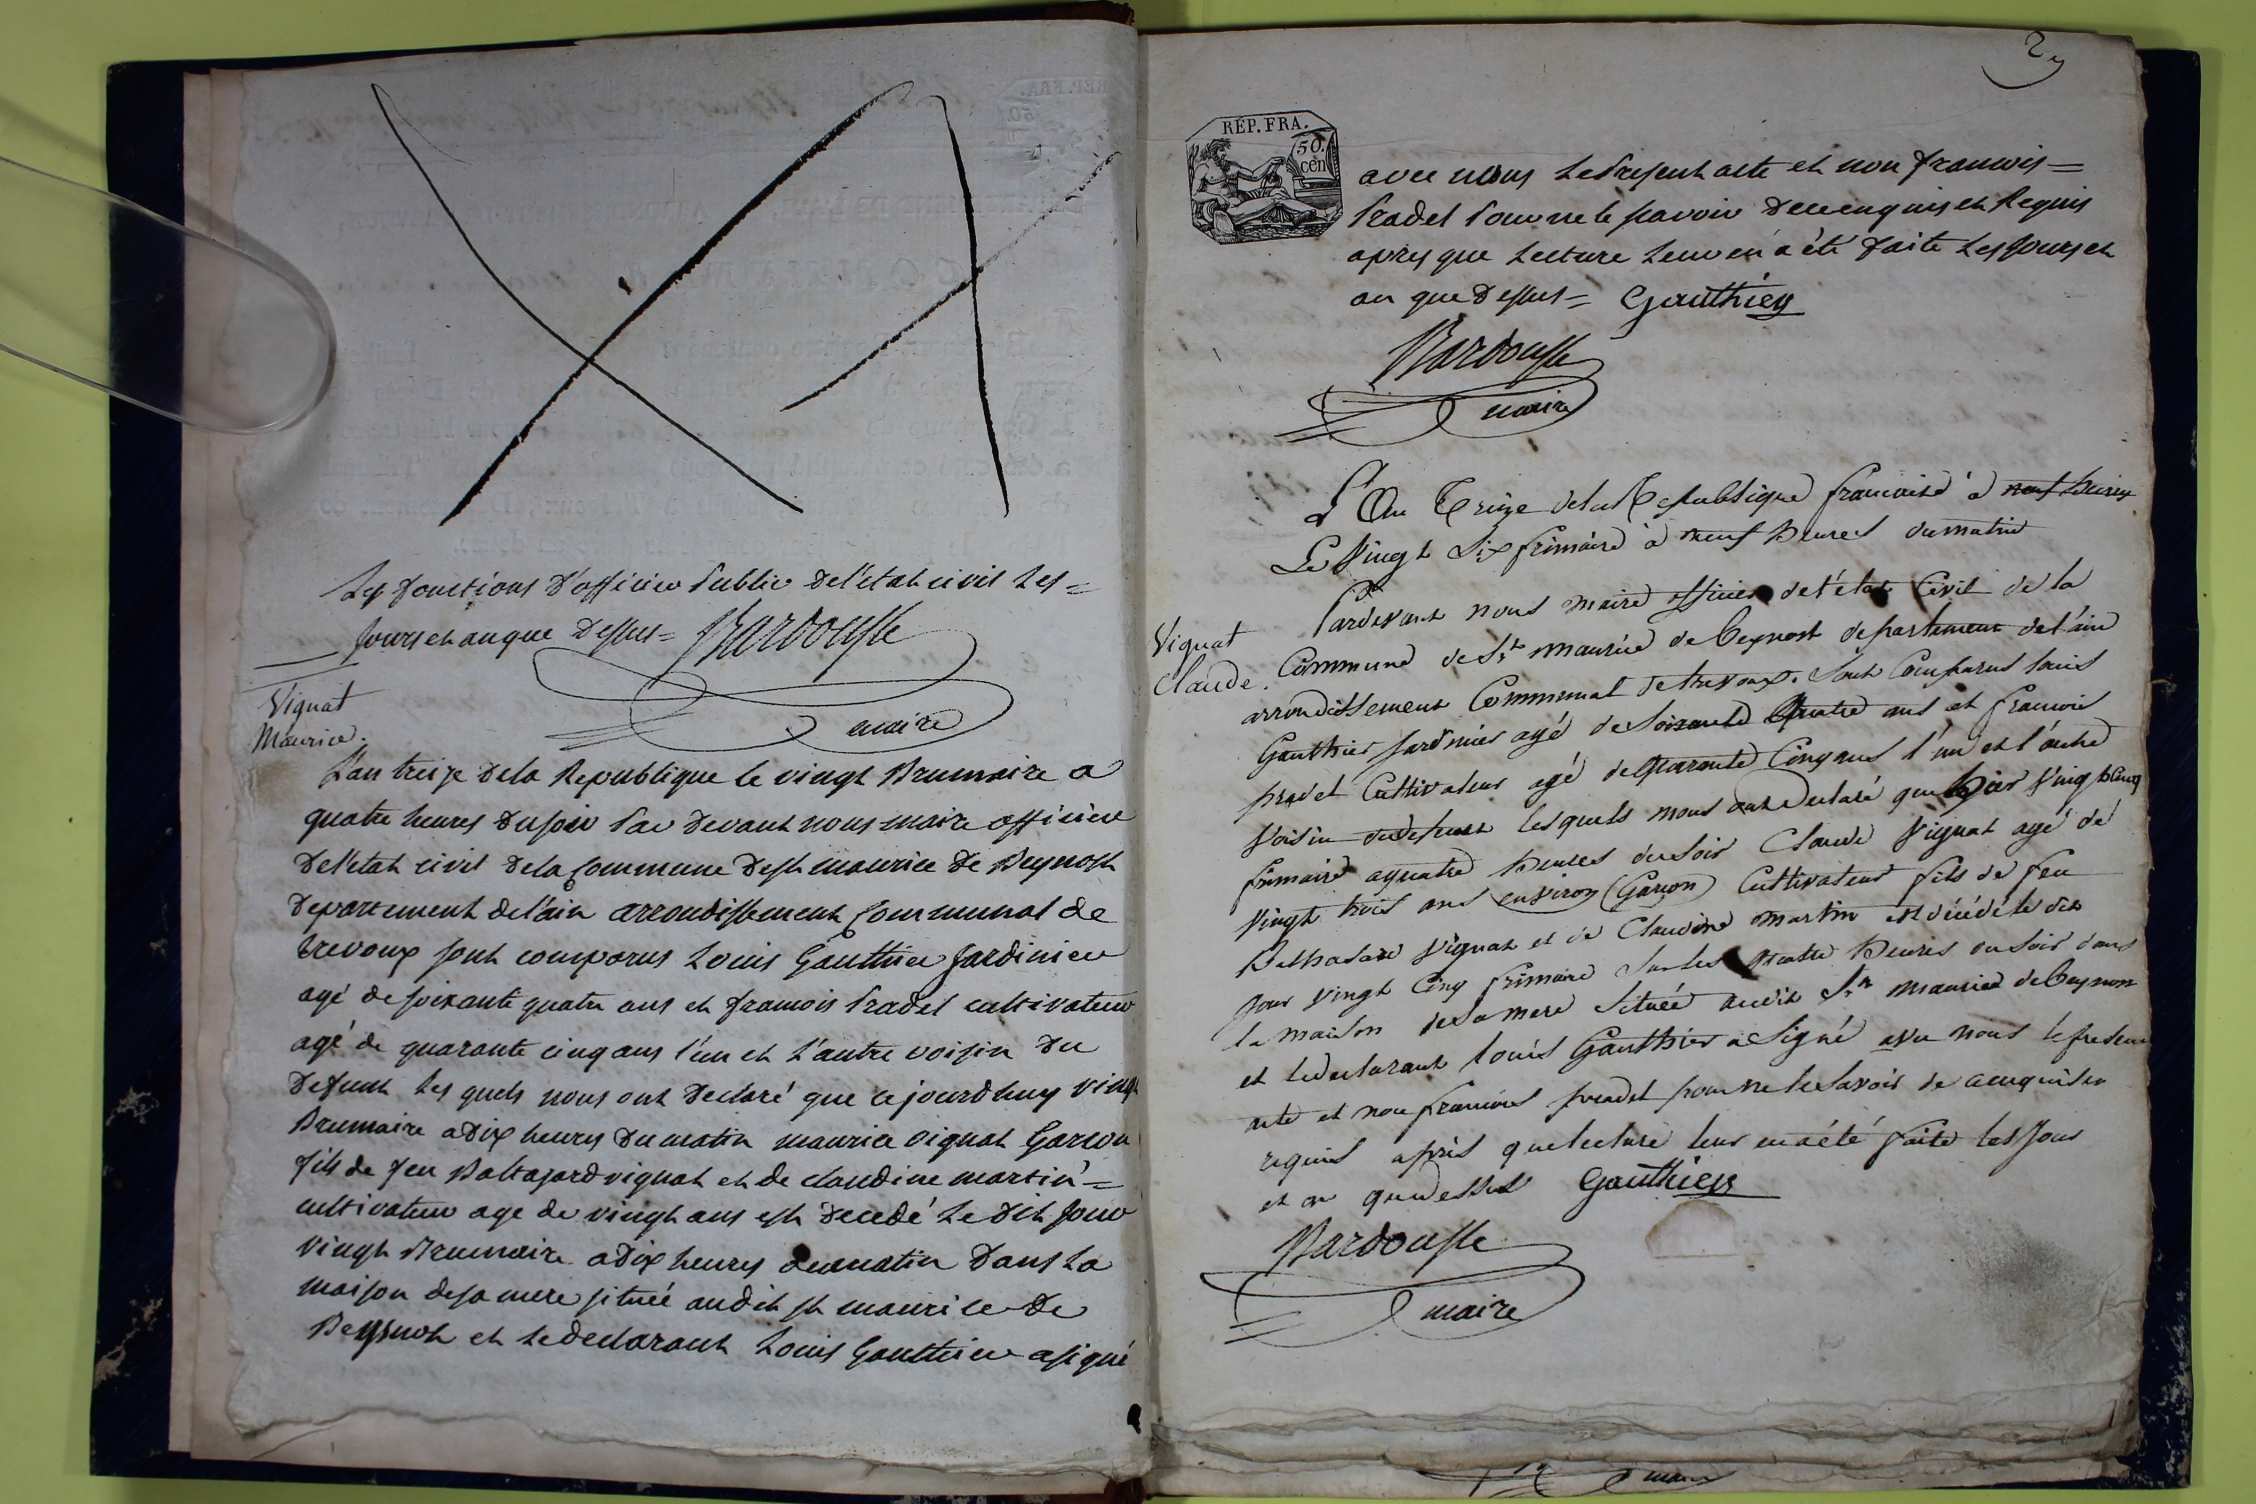 Les fonctions d'officier Public de l'état civil les =
Jours et an que Dessus = Bardousse
maire
Vignat
Maurice.
L'an treize de la Republique le vingt Brumaire a
quatre heures du soir Par devant nous maire officier
de l'etat civil de la Commune de st maurice de Beynost
Departement de l'ain arrondissement Communal de
trevoux sont comparus Louis Gauthier Jardinier
agé de soixante quatre ans et francois Pradel cultivateur
agé de quarante cinq ans l'un et l'autre voisin du
Defunt Les quels nous ont Declaré que cejourdhuy vingt
Brumaire a Dix heures du matin maurice vignat Garcon
fils de feu Baltazard vignat et de claudine martin =
cultivateur age de vingt ans est Decedé Le Dit Jour
vingt Brumaire a Dix heures du matin Dans La
maison de sa mere située au dit st maurice de
Beysnot et Le declarant Louis Gauthier a signé
2
REP. FRA.
50.
cen
avec nous Le Present acte et non francois =
Pradel Pour ne le savoir De ce enquis et Requis
apres que Lecture Leur en a été faite Les Jours et
an que Dessus = Gauthier
Bardousse
maire
L'An Treize de la Republique francaise à neuf heures
Le Vingt Six frimaire à neuf heures du matin
Pardevant nous maire officier de l'état Civil de la
Vignat
Claude.
Commune de St maurice de Beynost departement de l'ain
arrondissement Communal de trevoux. Sont Comparus louis
Gauthier Jardinier agé de Soixante Quatre ans et francois
pradel Cultivateur agé de Quarante Cinq ans l'un et l'autre
voisin du defunt lesquels nous ont Declaré que hier Vingt Cinq
frimaire a quatre heures du soir Claude Vignat agé de
Vingt trois ans environ (Garcon) Cultivateur fils de feu
Balthasard Vignat et de Claudine Martin est décédé le dit
Jour Vingt Cinq frimaire Sur les quatre heures du soir dans
la maison de sa mere Située au dit St maurice de Beynon
et le declarant louis Gauthier a Signé avec nous le present
acte et non francois pradel pour ne le Savoir de ce enquis et
requis après que lecture leur en a été faite les Jour
et an que dessus Gauthier
Bardousse
maire